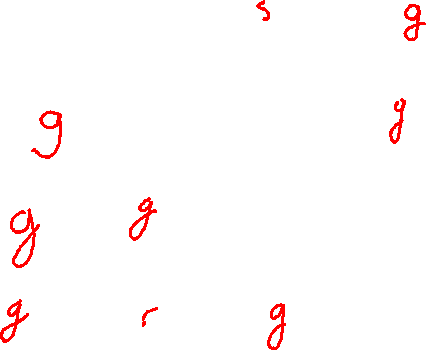 s g
g g
g g
g r g